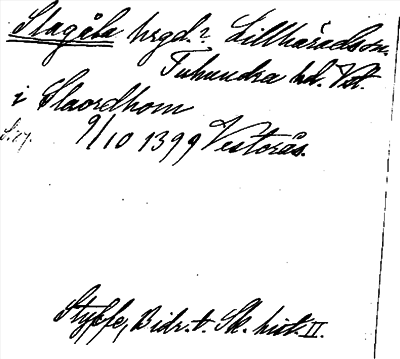 Slagåla hrgd.? Lillhäradssn.
Tuhundra hd. Vst.
i Slaordhom
9/10 1399 Vestorås.
Styffe, Bidr. t. Sk. hist. II.